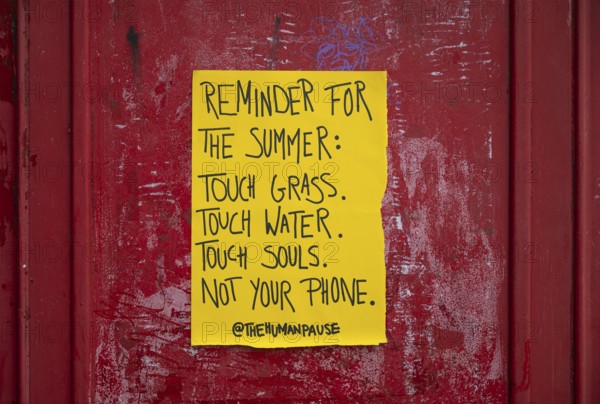 REMINDER FOR
THE SUMMER:
TOUCH GRASS.
TOUCH WATER.
TOUCH SOULS.
NOT YOUR PHONE.
@THEHUMANPAUSE